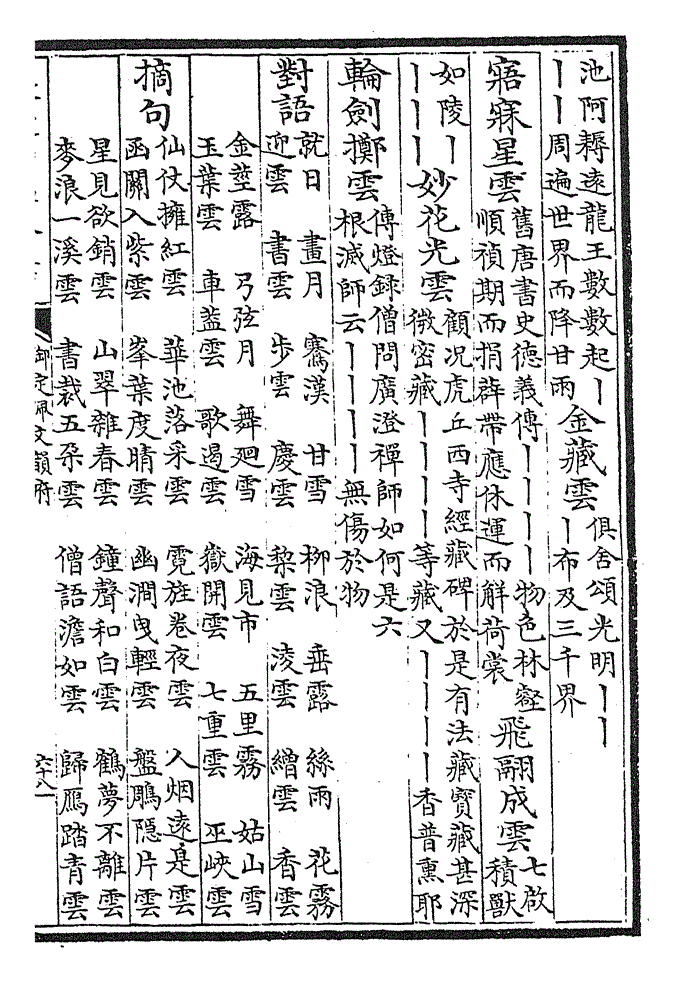 池阿耨遠龍王數數起丨
丨丨周遍世界而降甘雨
金藏雲
俱舍頌光明丨丨
丨布及三千界
寤寐星雲
舊唐書史德義傳丨丨丨丨物色林壑
順禎期而捐薜帶應休運而觧荷裳
飛翮成雲
七啟
積獸
如陵丨
丨丨丨
妙花光雲
顧况虎丘西寺經藏碑於是有法藏寳藏甚深
微密藏丨丨丨丨等藏又丨丨丨丨香普熏耶
輪劍擲雲
傳燈録僧問廣澄禪師如何是六
根滅師云丨丨丨丨無傷於物
對語
就日 畫月 騫漢 甘雪 栁浪 垂露 絲雨 花霧
迎雲 書雲 步雲 慶雲 棃雲 淩雲 繒雲 香雲
金莖露 弓弦月 舞廻雪 海見市 五里霧 姑山雪
玉葉雲 車葢雲 歌遏雲 嶽開雲 七重雲 巫峽雲
摘句
仙仗擁紅雲 華池落采雲 霓旌卷夜雲 入烟逺是雲
函關入紫雲 峯葉度晴雲 幽澗曳輕雲 盤鵰隱片雲
星見欲銷雲 山翠雜春雲 鐘聲和白雲 鶴夢不離雲
麥浪一溪雲 書裁五朶雲 僧語澹如雲 歸鴈踏青雲
御定佩文韻府
六十八